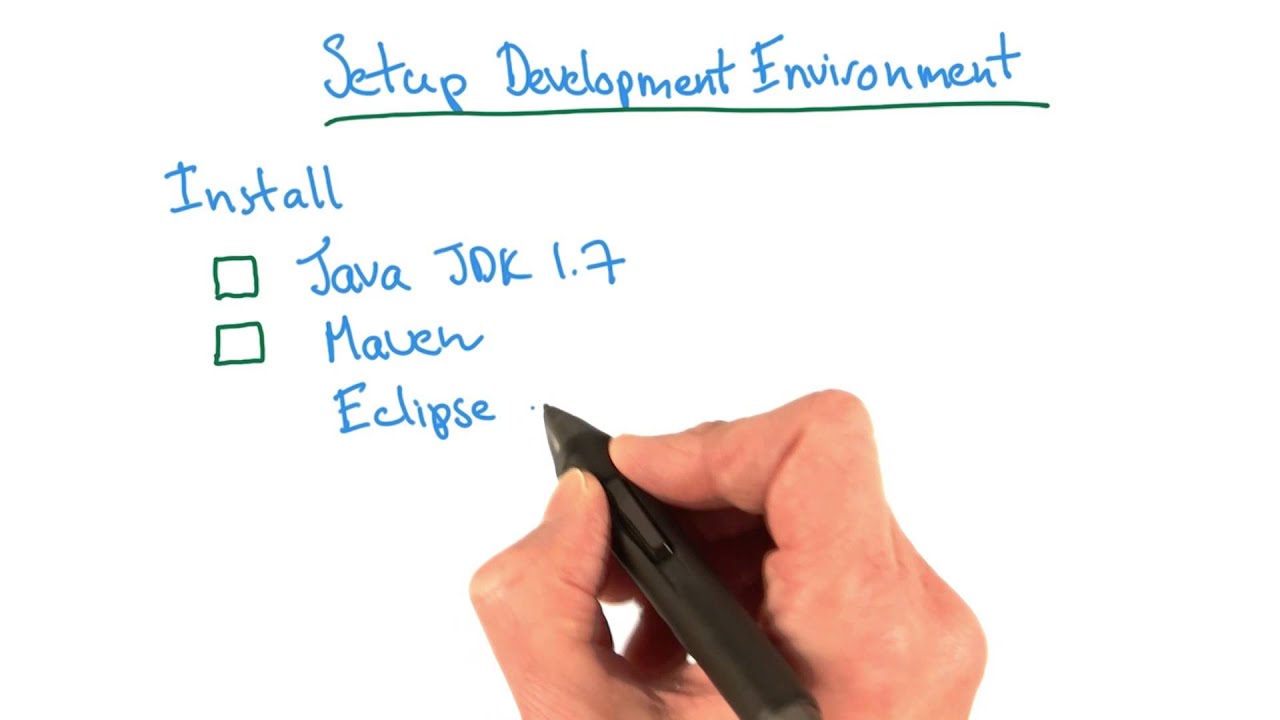 Setup Development Environment
Install
Java JDK 1.7
Maven
Eclipse